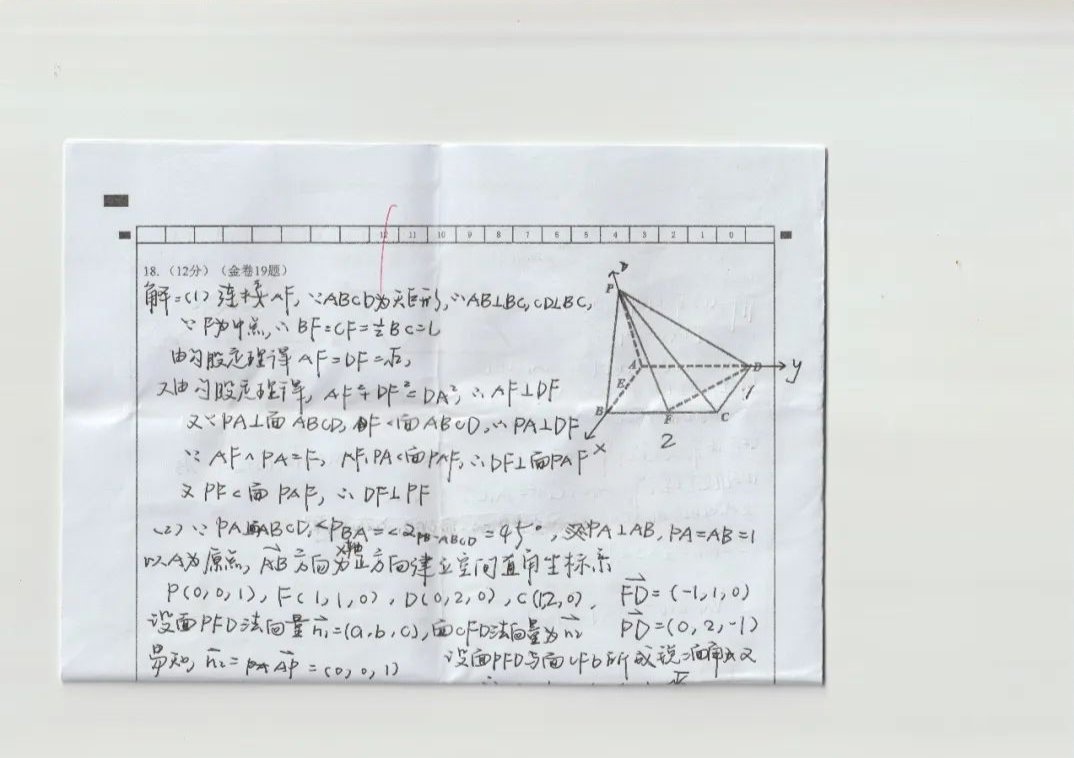 12 11 10 9 8 7 6 5 4 3 2 1 0
18.（12分）（金卷19题）
解:(1) 连接AF, ∵ABCD为矩形, ∴AB⊥BC, CD⊥BC,
∵F为中点, ∴BF=CF=½BC=1
由勾股定理得 AF=DF=√2,
又由勾股定理得, AF²+DF²=DA², ∴AF⊥DF
又∵PA⊥面ABCD, DF⊂面ABCD, ∴PA⊥DF
∵AF∩PA=F, AF,PA⊂面PAF, ∴DF⊥面PAF
又PF⊂面PAF, ∴DF⊥PF
(2) ∵PA⊥面ABCD, <PBA=<2PB-ABCD=45°, 又PA⊥AB, PA=AB=1
以A为原点, AB方向为x轴正方向建立空间直角坐标系
P(0,0,1), F(1,1,0), D(0,2,0), C(1,2,0), FD=(-1,1,0)
设面PFD法向量n₁=(a,b,c), 面CFD法向量为n₂ PD=(0,2,-1)
易知, n₂=AP=(0,0,1) 设面PFD与面CFD所成锐二面角为
P
A
D
y
E
B
F
C
x
2
1